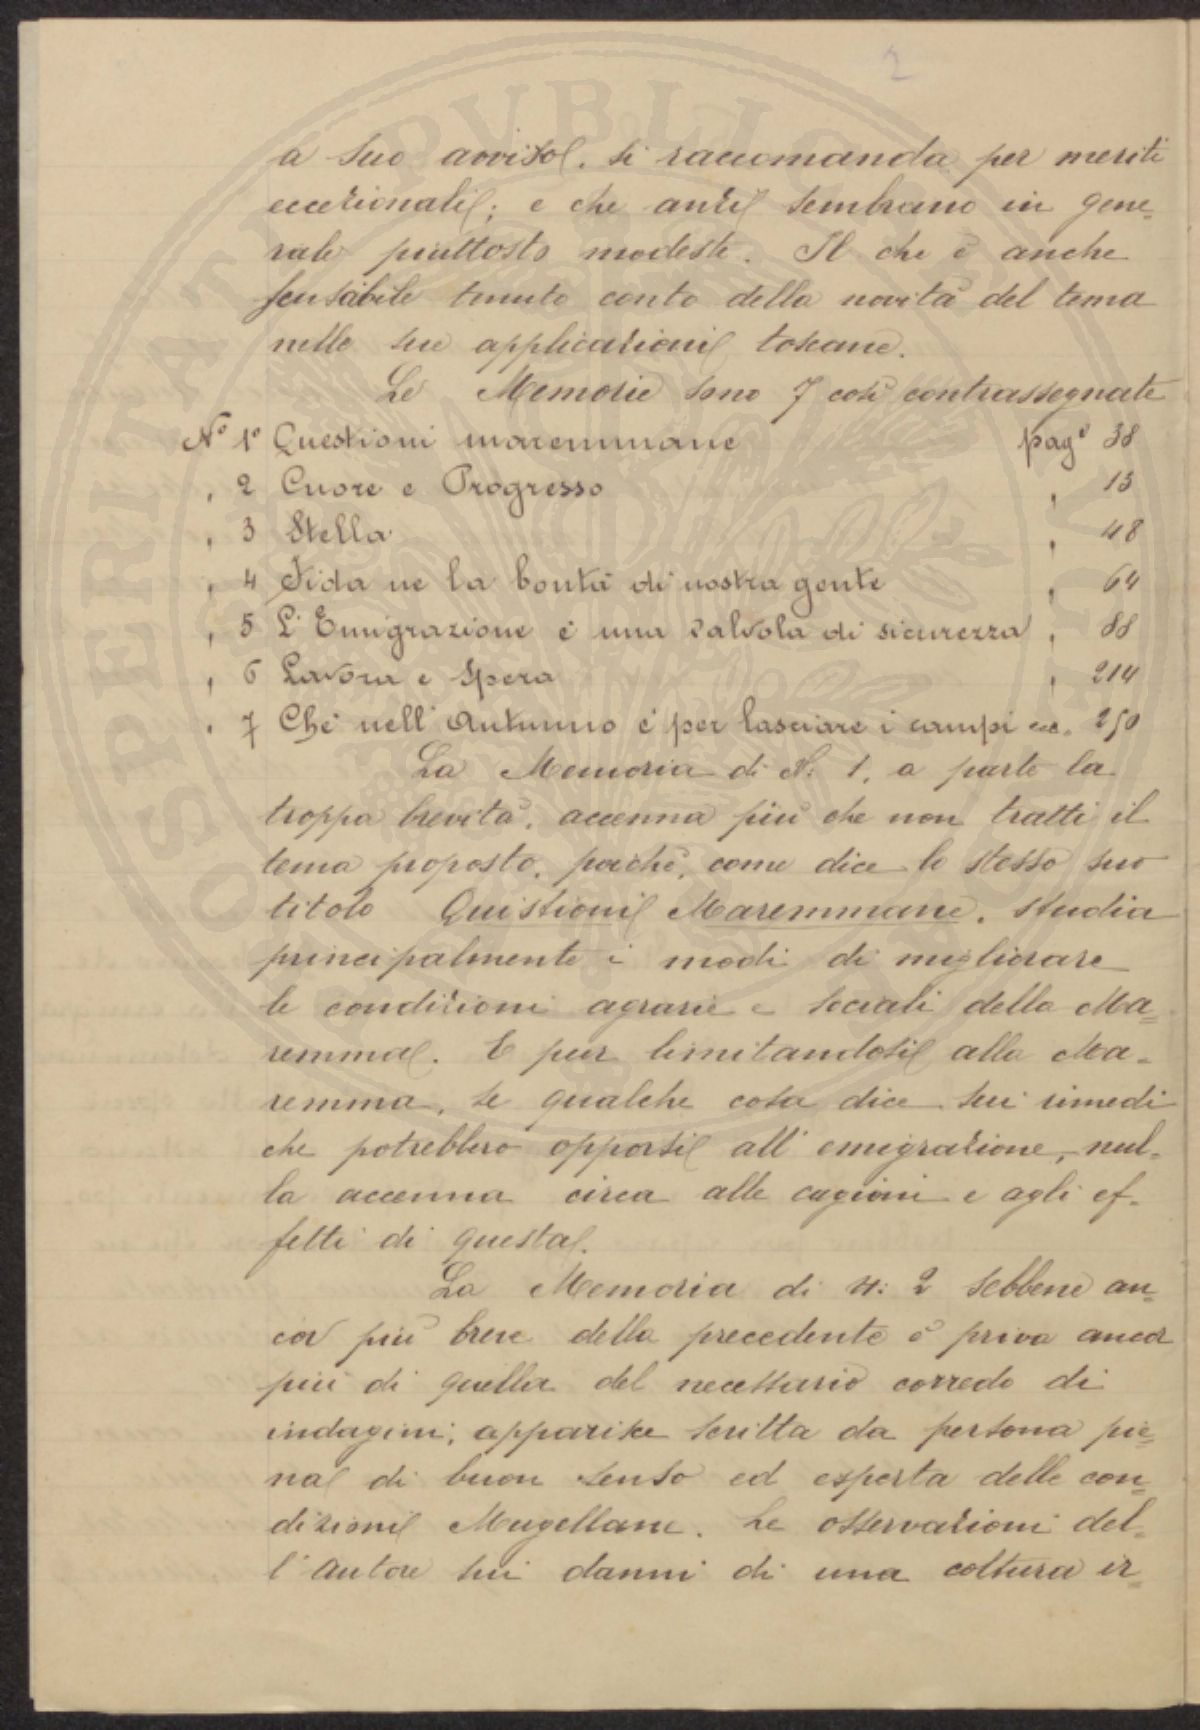 2
a suo avviso, si raccomanda per meriti
eccezionali; e che anzi sembrano in gene-
rale piuttosto modeste. Il che è anche
scusabile tenuto conto della novità del tema
nelle sue applicazioni toscane.
Le Memorie sono 7 così contrassegnate
N° 1° Questioni maremmane pag° 38
" 2 Cuore e Progresso " 13
" 3 Stella " 48
" 4 Fida ne la bontà di nostra gente " 64
" 5 L'Emigrazione è una valvola di sicurezza " 88
" 6 Lavora e Spera " 214
" 7 Che nell'Autunno è per lasciare i campi ecc. 250
La Memoria di N: 1, a parte la
troppa brevità, accenna più che non tratti il
tema proposto, poichè, come dice lo stesso suo
titolo Quistioni Maremmane, studia
principalmente i modi di migliorare
le condizioni agrarie e sociali della Ma=
remma. E pur limitandosi alla Ma-
remma, se qualche cosa dice sui rimedi
che potrebbero opporsi all'emigrazione, nul-
la accenna circa alle cagioni e agli ef-
fetti di questa.
La Memoria di N: 2 sebbene an=
cor più breve della precedente e priva ancor
più di quella del necessario corredo di
indagini, apparisce scritta da persona pie=
na di buon senso ed esperta delle con=
dizioni Mugellane. Le osservazioni del=
l'autore sui danni di una coltura ir=